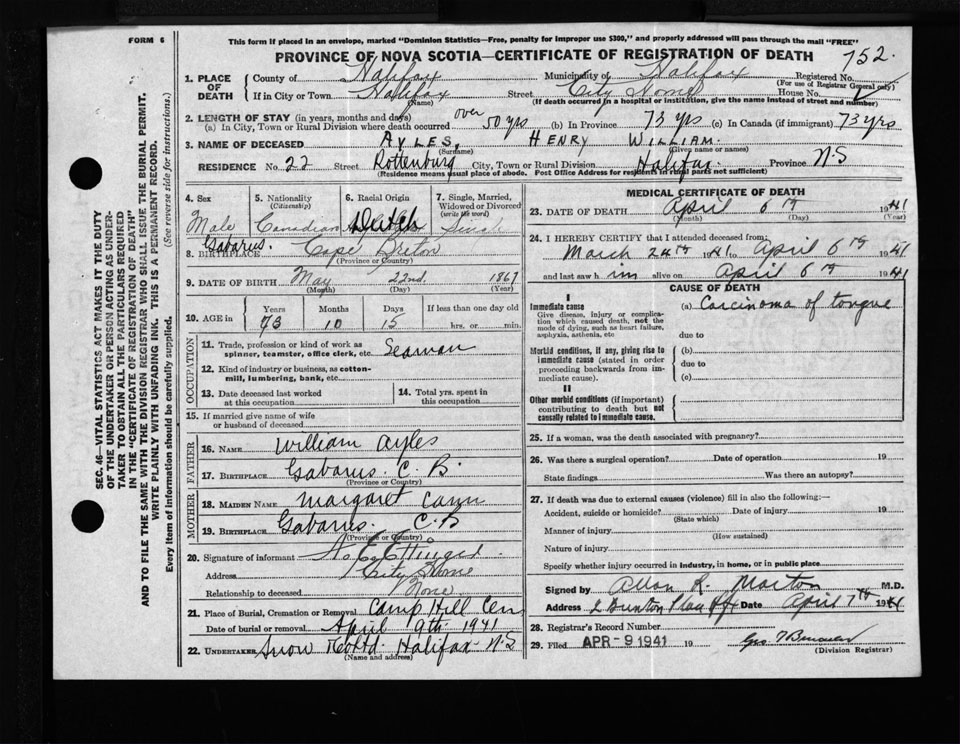 FORM 6
This form if placed in an envelope, marked "Dominion Statistics—Free, penalty for improper use $300," and properly addressed will pass through the mail "FREE"
PROVINCE OF NOVA SCOTIA—CERTIFICATE OF REGISTRATION OF DEATH
752.
1. PLACE OF DEATH
County of Halifax Municipality of Halifax Registered No.
(For use of Registrar General only)
If in City or Town Halifax Street City Home House No.
(Name) (If death occurred in a hospital or institution, give the name instead of street and number)
2. LENGTH OF STAY (in years, months and days)
(a) In City, Town or Rural Division where death occurred over 50 yrs (b) In Province 73 yrs (c) In Canada (if immigrant) 73 yrs
3. NAME OF DECEASED AYLES, HENRY WILLIAM.
(Surname) (Given name or names)
RESIDENCE No 22 Street Rottenburg City, Town or Rural Division Halifax Province N-S
(Residence means usual place of abode. Post Office Address for residents in rural parts not sufficient)
4. Sex
Male
5. Nationality
(Citizenship)
Canadian
6. Racial Origin
Dutch
7. Single, Married, Widowed or Divorced
(write the word)
Single
8. BIRTHPLACE Gabarus. Cape Breton
(Province or Country)
9. DATE OF BIRTH May 22nd 1867
(Month) (Day) (Year)
10. AGE in Years Months Days If less than one day old
73 10 15 hrs. or min.
OCCUPATION
11. Trade, profession or kind of work as spinner, teamster, office clerk, etc. Seaman
12. Kind of industry or business, as cotton-mill, lumbering, bank, etc.
13. Date deceased last worked at this occupation
14. Total yrs. spent in this occupation
15. If married give name of wife or husband of deceased
FATHER
16. Name William Ayles
17. Birthplace Gabarus. C. B.
(Province or Country)
MOTHER
18. Maiden Name Margaret Cann
19. Birthplace Gabarus. C. B
(Province or Country)
20. Signature of informant
Address City Home
Relationship to deceased None
21. Place of Burial, Cremation or Removal Camp Hill Cem
Date of burial or removal April 9th 1941
22. Undertaker Snow & Co Ltd. Halifax N-S
(Name and address)
MEDICAL CERTIFICATE OF DEATH
23. DATE OF DEATH April 6th 1941
(Month) (Day) (Year)
24. I HEREBY CERTIFY that I attended deceased from:
March 24th 1941 to April 6th 1941
and last saw him alive on April 6th 1941
CAUSE OF DEATH
I
Immediate cause
Give disease, injury or complication which caused death, not the mode of dying, such as heart failure, asphyxia, asthenia, etc
(a) Carcinoma of tongue
due to
Morbid conditions, if any, giving rise to immediate cause (stated in order proceeding backwards from immediate cause).
(b)
due to
(c)
II
Other morbid conditions (if important) contributing to death but not causally related to immediate cause.
25. If a woman, was the death associated with pregnancy?
26. Was there a surgical operation? Date of operation 19
State findings Was there an autopsy?
27. If death was due to external causes (violence) fill in also the following:—
Accident, suicide or homicide? Date of injury 19
(State which)
Manner of injury
(How sustained)
Nature of injury
Specify whether injury occurred in industry, in home, or in public place
Signed by Allan R. Morton M.D.
Address Date April 7th 1941
28. Registrar's Record Number
29. Filed APR - 9 1941 19
(Division Registrar)
SEC. 46—VITAL STATISTICS ACT MAKES IT THE DUTY
OF THE UNDERTAKER OR PERSON ACTING AS UNDER-
TAKER TO OBTAIN ALL THE PARTICULARS REQUIRED
IN THE "CERTIFICATE OF REGISTRATION OF DEATH"
AND TO FILE THE SAME WITH THE DIVISION REGISTRAR WHO SHALL ISSUE THE BURIAL PERMIT.
WRITE PLAINLY WITH UNFADING INK. THIS IS A PERMANENT RECORD.
Every item of information should be carefully supplied. (See reverse side for instructions.)